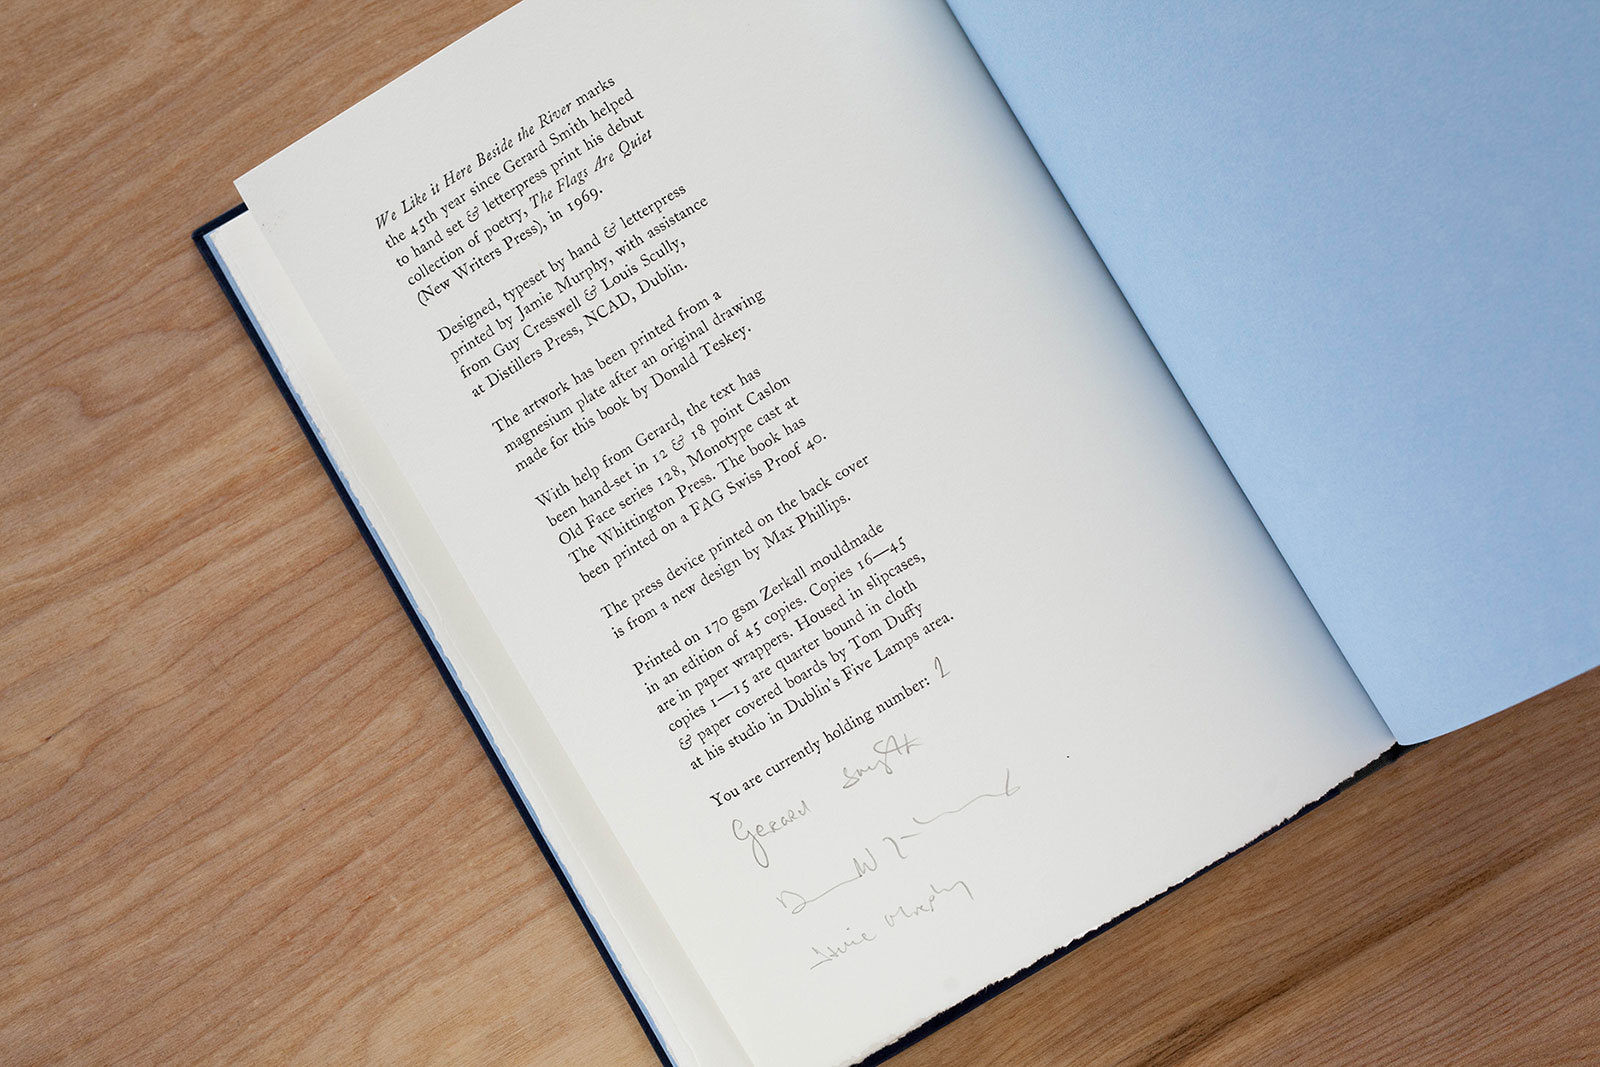 We Like it Here Beside the River marks
the 45th year since Gerard Smith helped
to hand set & letterpress print his debut
collection of poetry, The Flags Are Quiet
(New Writers Press), in 1969.
Designed, typeset by hand & letterpress
printed by Jamie Murphy, with assistance
from Guy Cresswell & Louis Scully,
at Distillers Press, NCAD, Dublin.
The artwork has been printed from a
magnesium plate after an original drawing
made for this book by Donald Teskey.
With help from Gerard, the text has
been hand-set in 12 & 18 point Caslon
Old Face series 128, Monotype cast at
The Whittington Press. The book has
been printed on a FAG Swiss Proof 40.
The press device printed on the back cover
is from a new design by Max Phillips.
Printed on 170 gsm Zerkall mouldmade
in an edition of 45 copies. Copies 16—45
are in paper wrappers. Housed in slipcases,
copies 1—15 are quarter bound in cloth
& paper covered boards by Tom Duffy
at his studio in Dublin's Five Lamps area.
You are currently holding number:
Gerard Smyth
Jamie Murphy